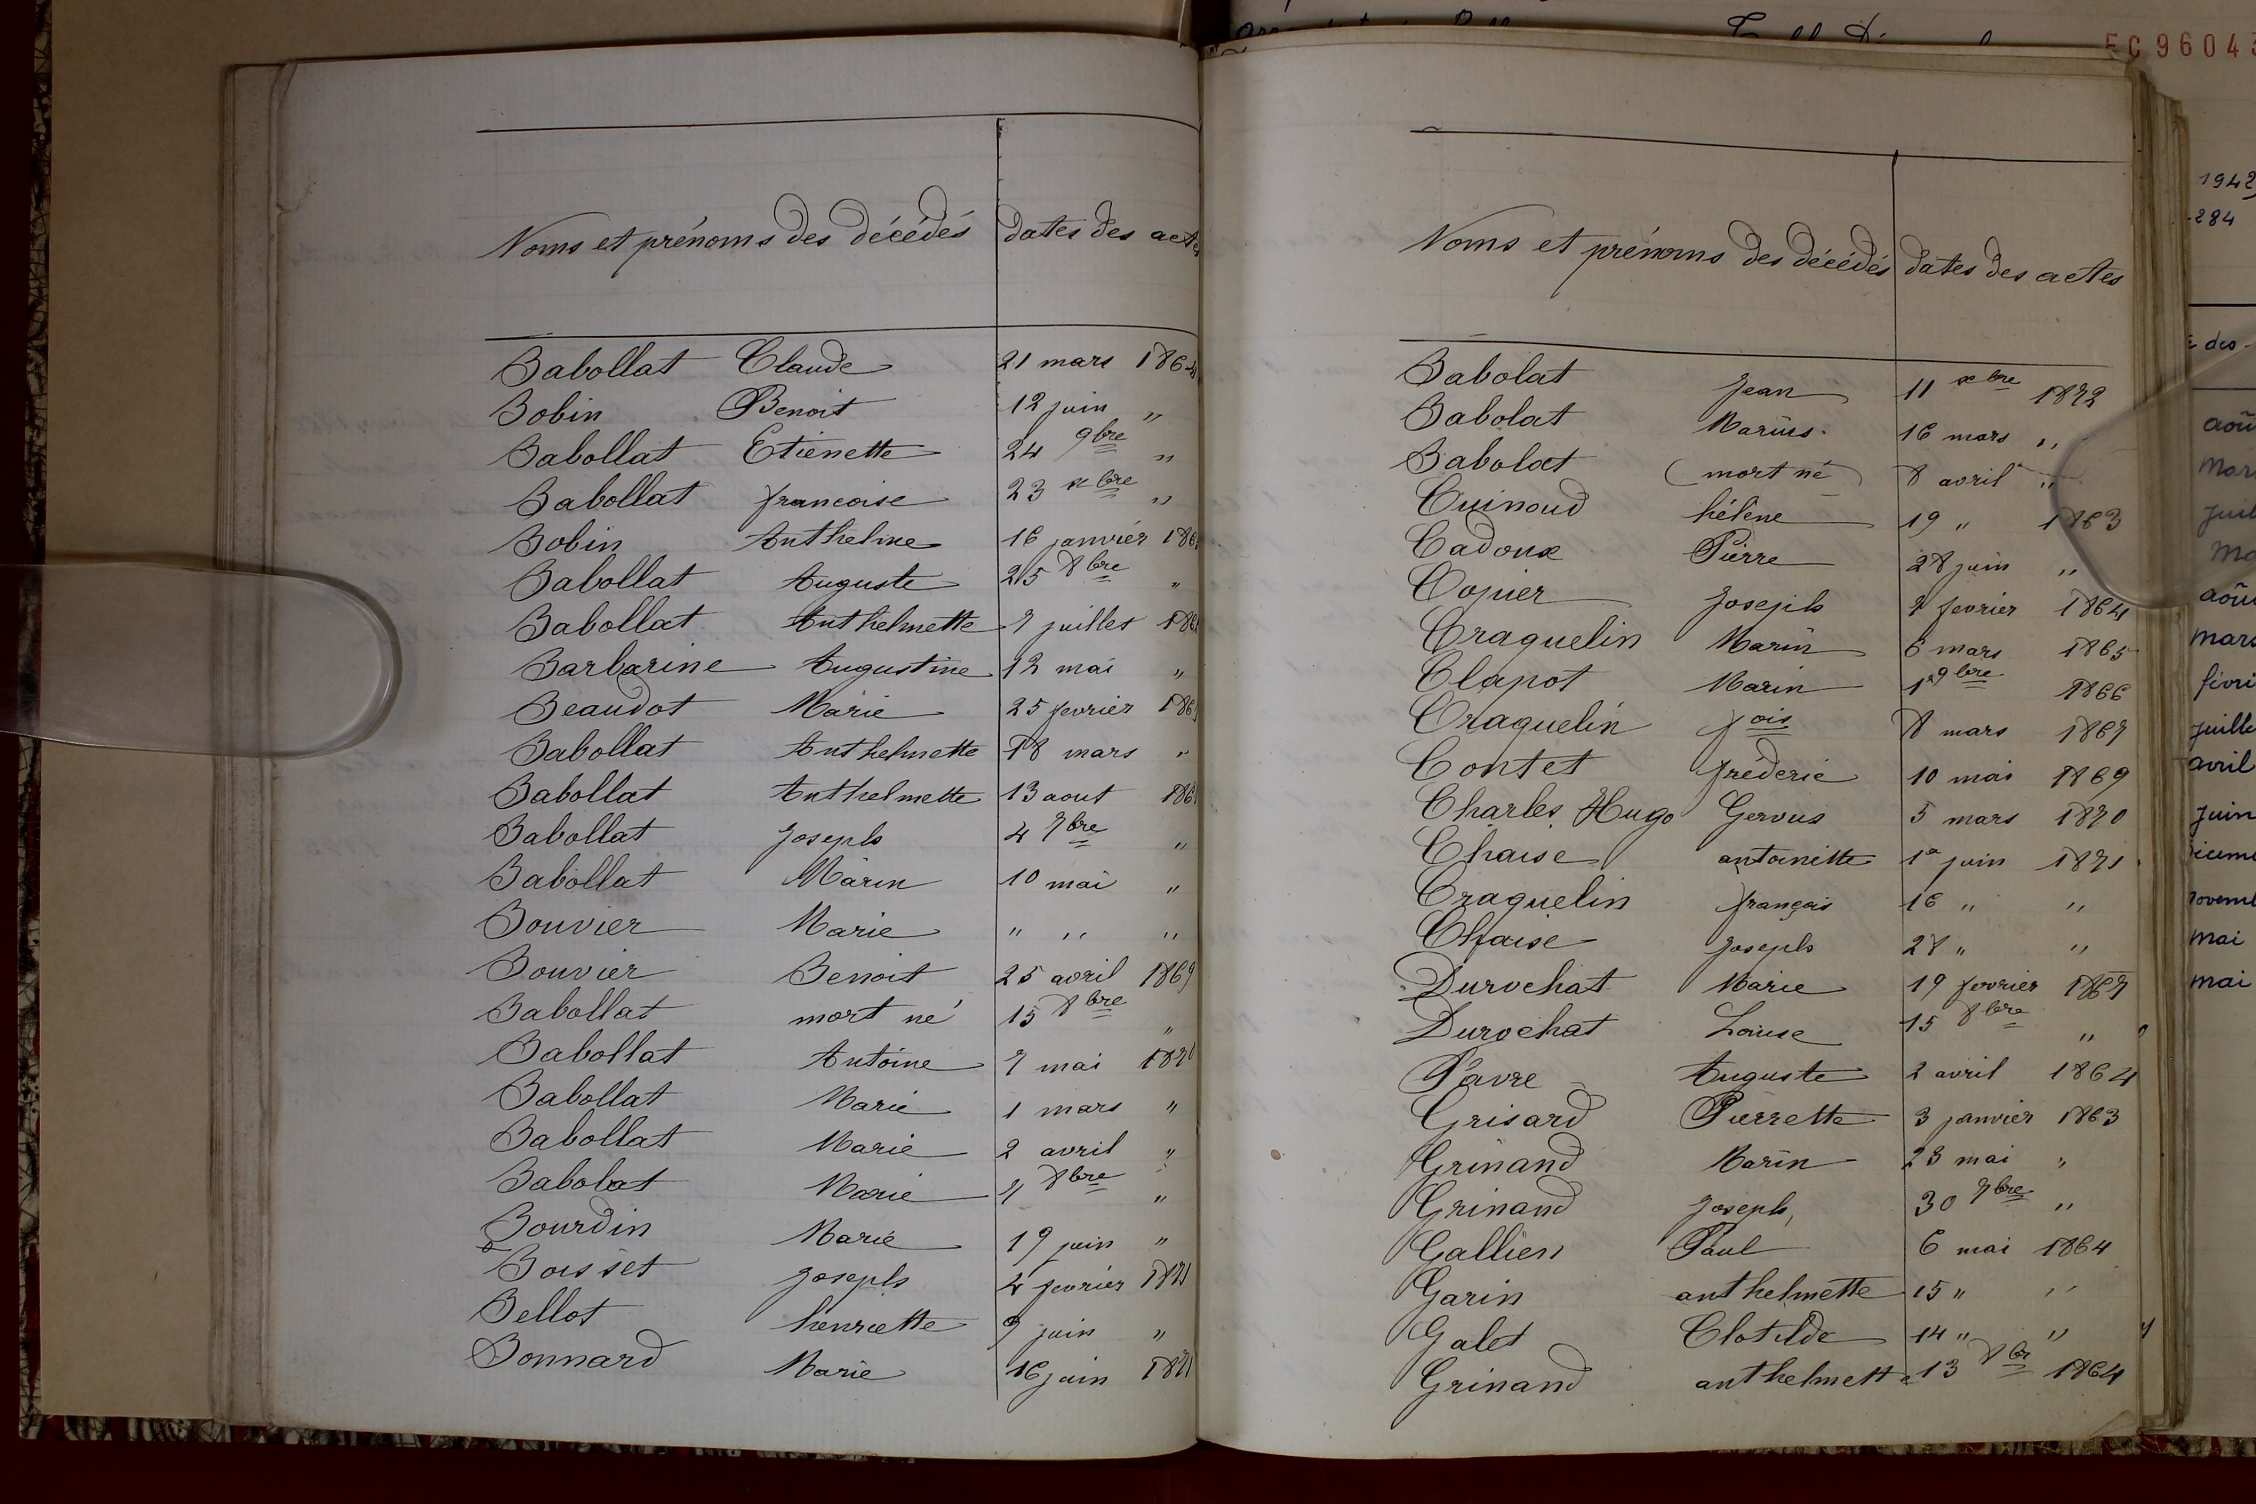 Noms et prénoms des décédés dates des actes
Babollat Claude 21 mars 1864
Bobin Benoit 12 juin "
Babollat Etienette 24 9bre "
Babollat francoise 23 xbre "
Bobin Anthelme 16 janvier
Babollat Auguste 25 8bre "
Babollat Anthelmette 7 juillet
Barbarine Augustine 12 mai "
Beaudot Marie 25 fevrier
Babollat Anthelmette 18 mars "
Babollat Anthelmette 13 aout
Babollat Joseph 4 7bre "
Babollat Marin 10 mai "
Bouvier Marie " " "
Bouvier Benoit 25 avril 1869
Babollat mort né 15 8bre "
Babollat Antoine 7 mai 1870
Babollat Marie 1 mars "
Babollat Marie 2 avril "
Babolat Marie 8bre "
Bourdin Marie 19 juin "
Boisset Joseph 4 fevrier 1871
Bellot henriette 9 juin "
Bonnard Marie 16 juin 1871
Noms et prénoms des décédés dates des actes
Babolat Jean 11 xbre 1872
Babolat Marius 16 mars "
Babolat (mort né) 8 avril "
Cuinoud hélène 19 " 1863
Cadoux Pierre 28 juin "
Copier Joseph fevrier 1864
Craquelin Marin 6 mars 1865
Clapot Marin 1er 9bre 1866
Craquelin fois 8 mars 1867
Contet fréderic 10 mai 1869
Charles Hugo Gervais 5 mars 1870
Chaise antoinette 1er juin 1871
Craquelin françois 16 " "
Chaise Joseph 28 " "
Durochat Marie 19 fevrier 1867
Durochat Louise 15 8bre "
Favre Auguste 2 avril 1864
Grisard Pierrette 3 janvier 1863
Grinand Marin 23 mai "
Grinand Joseph 30 7bre "
Gallien Paul 6 mai 1864
Garin anthelmette 15 " "
Galet Clotilde 14 " "
Grinand anthelmette 13 8bre 1864
1942
284
mai
mai